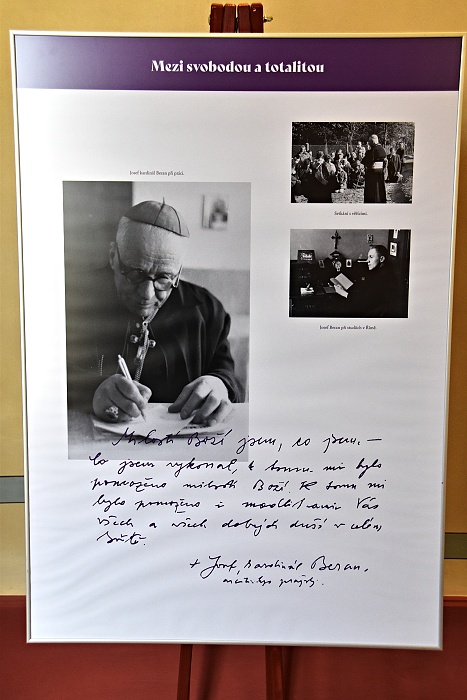 Mezi svobodou a totalitou
Josef kardinál Beran při práci.
Setkání s věřícími.
Josef Beran při studiích v Římě.
Milostí Boží jsem, co jsem. —
Co jsem vykonal, k tomu mi bylo
pomoženo milostí Boží. K tomu mi
bylo pomoženo i modlitbami Vás
všech a všech dobrých duší v celém
světě.
+ Josef kardinál Beran,